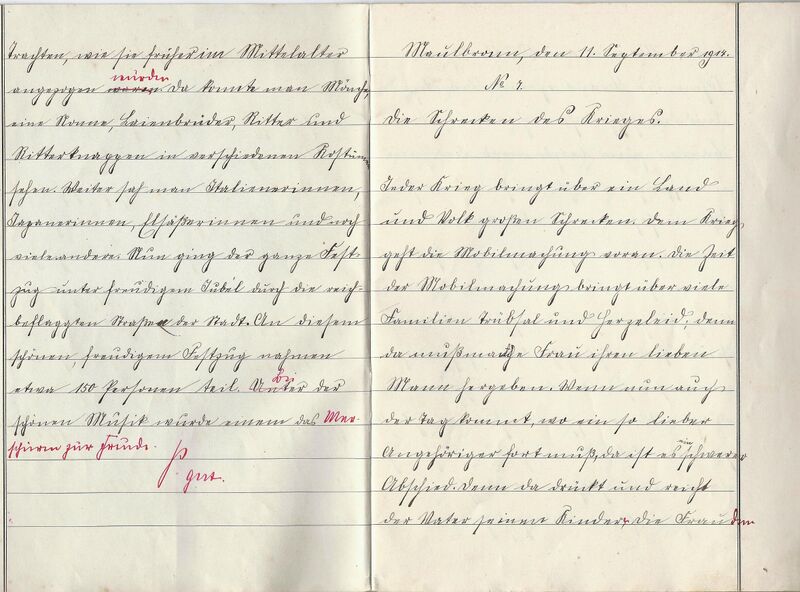 Trachten, wie sie früher im Mittelalter
wurden
angezogen waren. Da konnte man Mönche,
eine Nonne, Laienbrüder, Ritter und
Ritterknappen in verschiedenen Kostümen
sehen. Weiter sah man Italienerinnen,
Japanerinnen, Elsäßerinnen und noch
viele andere. Nun ging der ganze Fest-
zug unter freudigem Jubel durch die reich-
beflaggten Straßen der Stadt. An diesem
schönen, freudigem Festzug nahmen
etwa 150 Personen teil. Unter der
Bei
schönen Musik wurde einem das Mar-
schieren zur Freude.
gut.
Maulbronn, den 11. September 1914.
No 7.
Die Schrecken des Krieges.
Jeder Krieg bringt über ein Land
und Volk großen Schrecken. Dem Krieg
geht die Mobilmachung voran. Die Zeit
der Mobilmachung bringt über viele
Familien Trübsal und Herzeleid; denn
da muß manche Frau ihren lieben
Mann hergeben. Wenn nun auch
der Tag kommt, wo ein so lieber
Angehöriger fort muß, da ist es ein schwerer
Abschied. Denn da drückt und reicht
der Vater seinen Kindern, die Frau dem